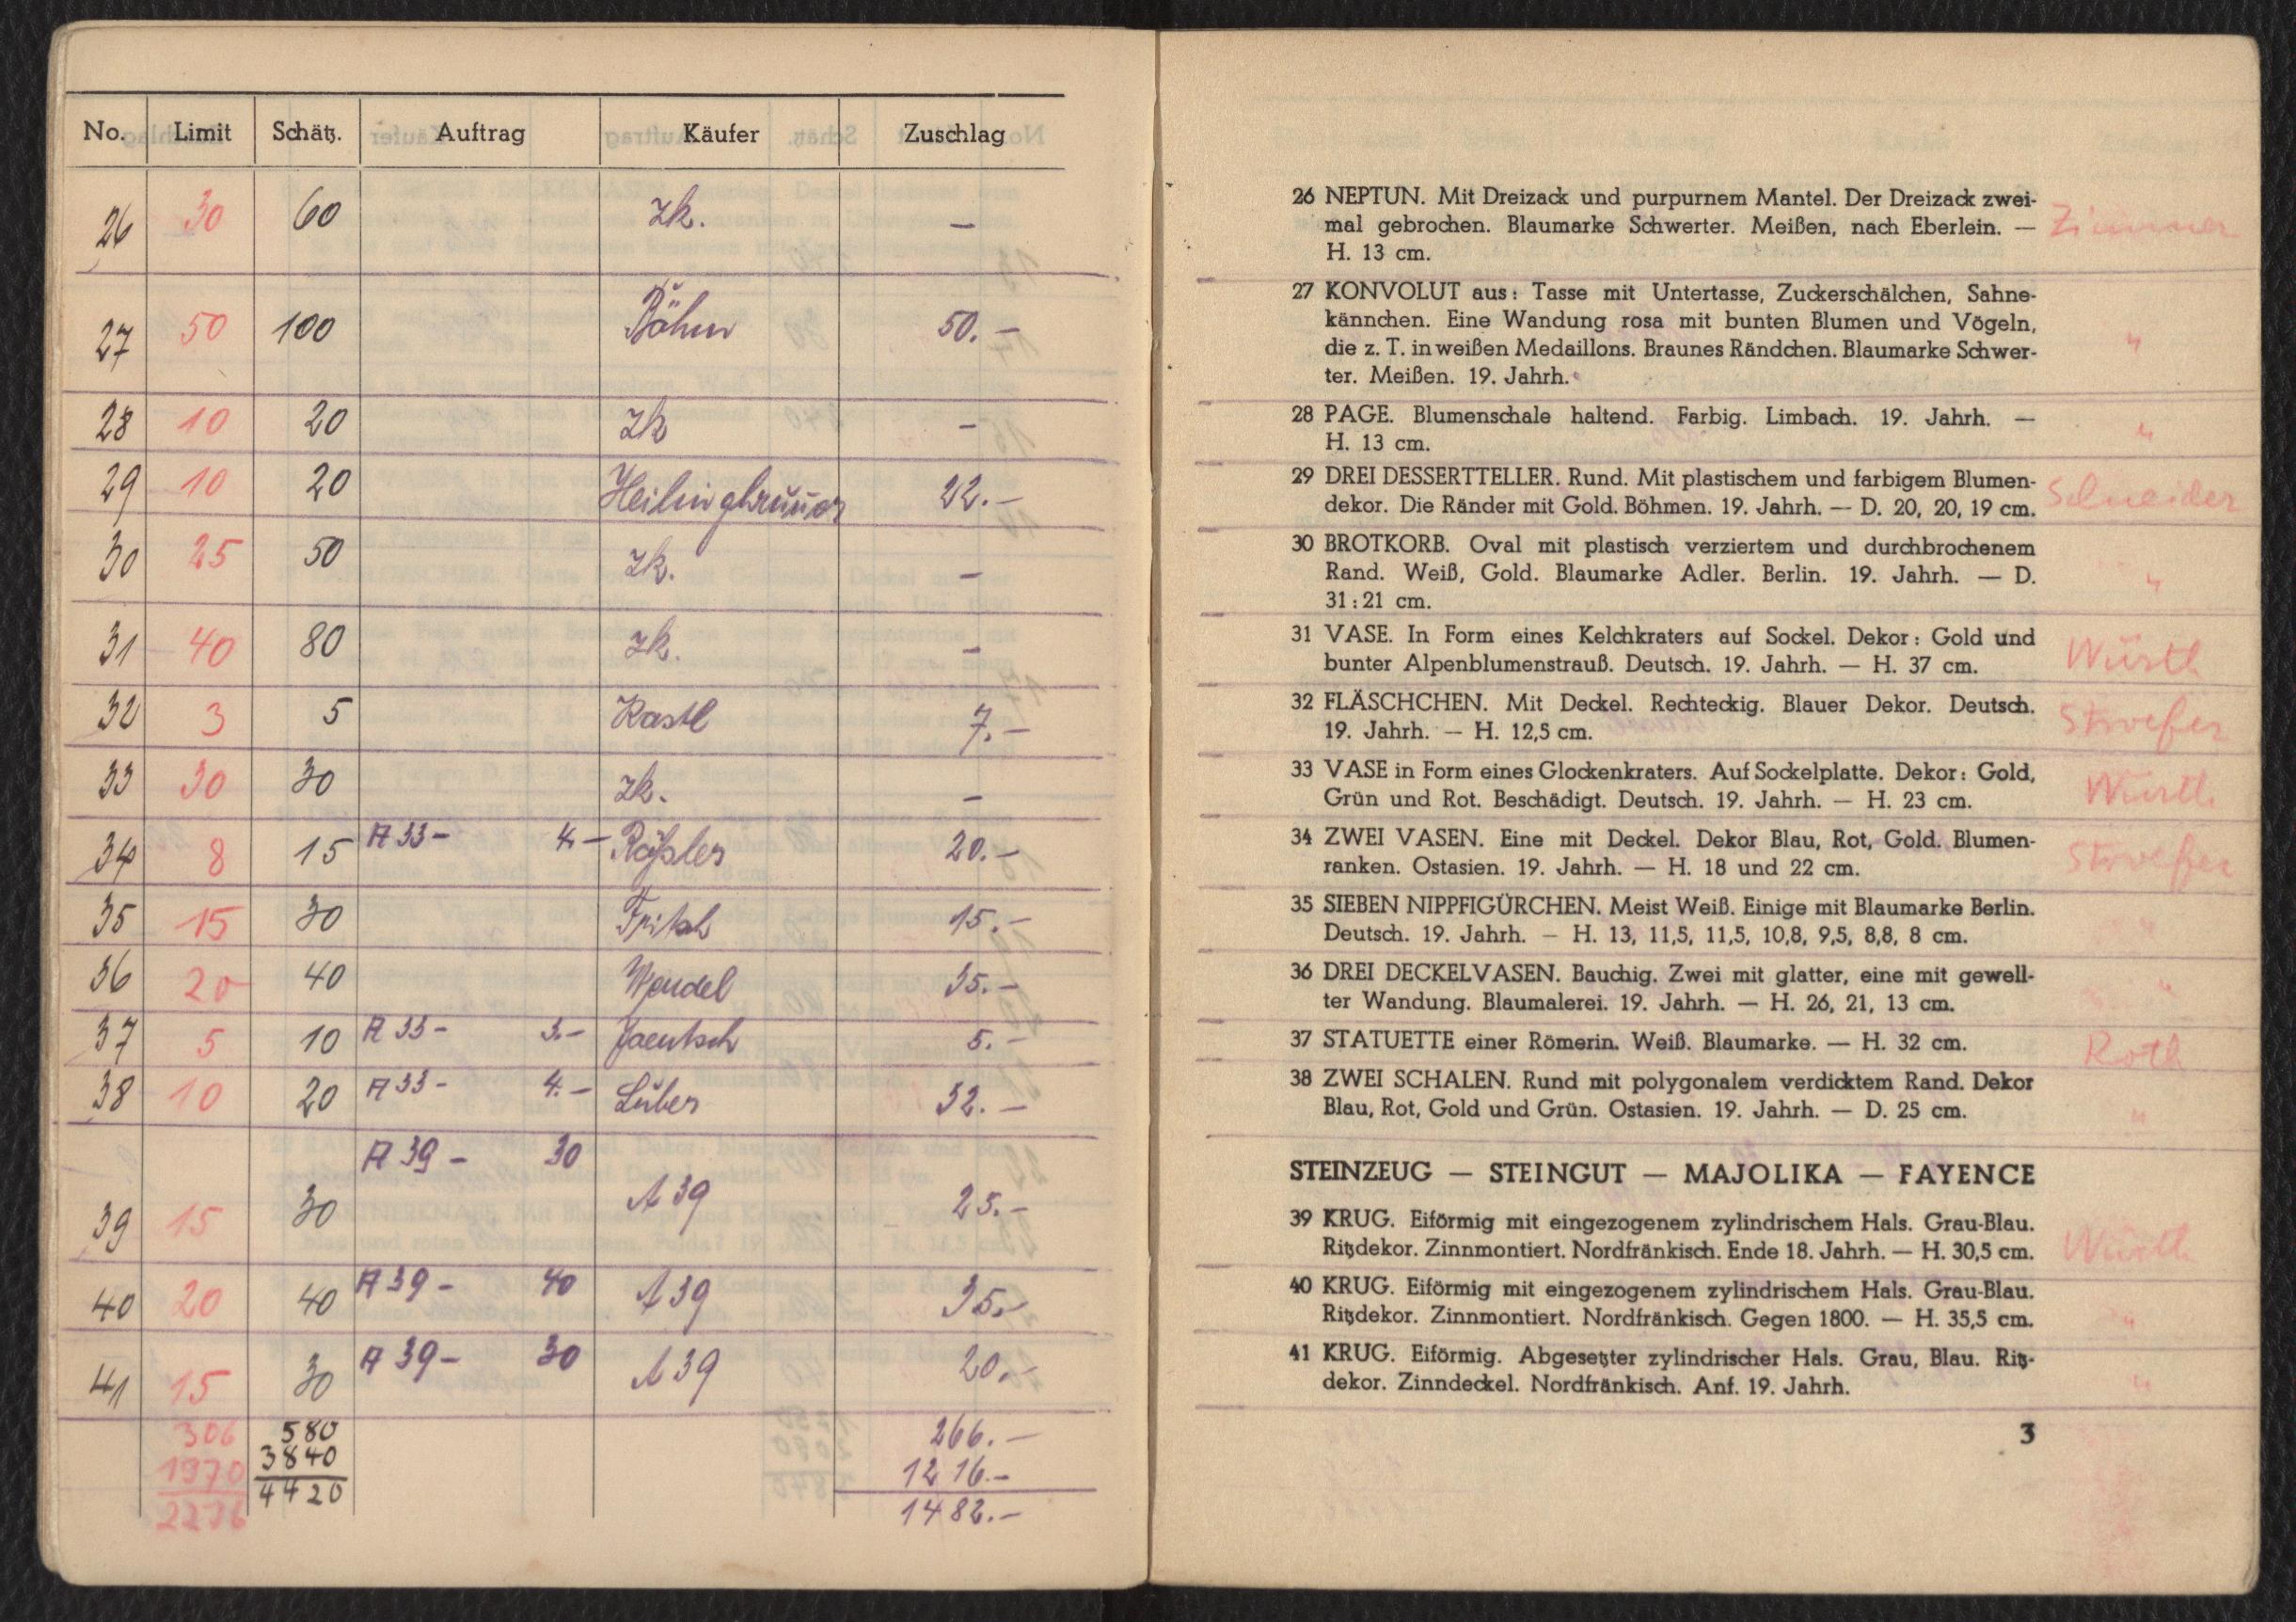 No. Limit Schätz. Auftrag Käufer Zuschlag
26 30 60 zk. —
27 50 100 Böhm 50.—
28 10 20 zk —
29 10 20 22.—
30 25 50 zk. —
31 40 80 zk. —
32 3 5 Kastl 7.—
33 30 30 zk. —
34 8 15 A 33 — 4.— 20.—
35 15 30 15.—
36 20 40 Wendel 35.—
37 5 10 A 33 — 3.— Jaentsch 5.—
38 10 20 A 33 — 4.— Lüber 32.—
39 15 30 A 39 — 30 A 39 25.—
40 20 40 A 39 — 40 A 39 35.—
41 15 30 A 39 — 30 A 39 20.—
306 580 266.—
1970 3840 1216.—
2276 4420 1482.—
26 NEPTUN. Mit Dreizack und purpurnem Mantel. Der Dreizack zwei-
mal gebrochen. Blaumarke Schwerter. Meißen, nach Eberlein. — Zimmer
H. 13 cm.
27 KONVOLUT aus: Tasse mit Untertasse, Zuckerschälchen, Sahne-
kännchen. Eine Wandung rosa mit bunten Blumen und Vögeln,
die z. T. in weißen Medaillons. Braunes Rändchen. Blaumarke Schwer- "
ter. Meißen. 19. Jahrh.
28 PAGE. Blumenschale haltend. Farbig. Limbach. 19. Jahrh. —
H. 13 cm. "
29 DREI DESSERTTELLER. Rund. Mit plastischem und farbigem Blumen- Schneider
dekor. Die Ränder mit Gold. Böhmen. 19. Jahrh. — D. 20, 20, 19 cm.
30 BROTKORB. Oval mit plastisch verziertem und durchbrochenem
Rand. Weiß, Gold. Blaumarke Adler. Berlin. 19. Jahrh. — D. "
31 : 21 cm.
31 VASE. In Form eines Kelchkraters auf Sockel. Dekor: Gold und Würth
bunter Alpenblumenstrauß. Deutsch. 19. Jahrh. — H. 37 cm.
32 FLÄSCHCHEN. Mit Deckel. Rechteckig. Blauer Dekor. Deutsch. Stroefer
19. Jahrh. — H. 12,5 cm.
33 VASE in Form eines Glockenkraters. Auf Sockelplatte. Dekor: Gold, Würth
Grün und Rot. Beschädigt. Deutsch. 19. Jahrh. — H. 23 cm.
34 ZWEI VASEN. Eine mit Deckel. Dekor Blau, Rot, Gold. Blumen- Stroefer
ranken. Ostasien. 19. Jahrh. — H. 18 und 22 cm.
35 SIEBEN NIPPFIGÜRCHEN. Meist Weiß. Einige mit Blaumarke Berlin. "
Deutsch. 19. Jahrh. — H. 13, 11,5, 11,5, 10,8, 9,5, 8,8, 8 cm.
36 DREI DECKELVASEN. Bauchig. Zwei mit glatter, eine mit gewell- "
ter Wandung. Blaumalerei. 19. Jahrh. — H. 26, 21, 13 cm.
37 STATUETTE einer Römerin. Weiß. Blaumarke. — H. 32 cm. Roth
38 ZWEI SCHALEN. Rund mit polygonalem verdicktem Rand. Dekor
Blau, Rot, Gold und Grün. Ostasien. 19. Jahrh. — D. 25 cm. "
STEINZEUG — STEINGUT — MAJOLIKA — FAYENCE
39 KRUG. Eiförmig mit eingezogenem zylindrischem Hals. Grau-Blau.
Ritzdekor. Zinnmontiert. Nordfränkisch. Ende 18. Jahrh. — H. 30,5 cm. Würth
40 KRUG. Eiförmig mit eingezogenem zylindrischem Hals. Grau-Blau.
Ritzdekor. Zinnmontiert. Nordfränkisch. Gegen 1800. — H. 35,5 cm. "
41 KRUG. Eiförmig. Abgesetzter zylindrischer Hals. Grau, Blau. Ritz-
dekor. Zinndeckel. Nordfränkisch. Anf. 19. Jahrh. "
3